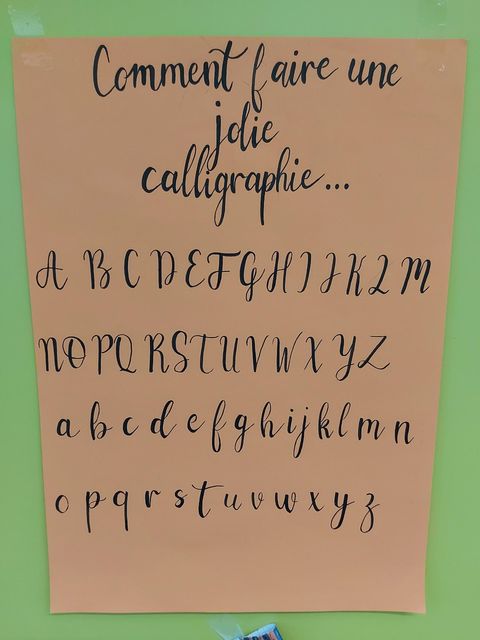 Comment faire une
jolie
calligraphie...
A B C D E F G H I J K L M
N O P Q R S T U V W X Y Z
a b c d e f g h i j k l m n
o p q r s t u v w x y z